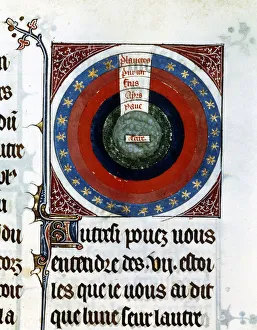 de
autre
corz
la
planetes
feus
ayrs
yaue
terre
Autresi pouez uous
entendre des .vij. estoi
les que ie uous ai dit
que lune seur lautre